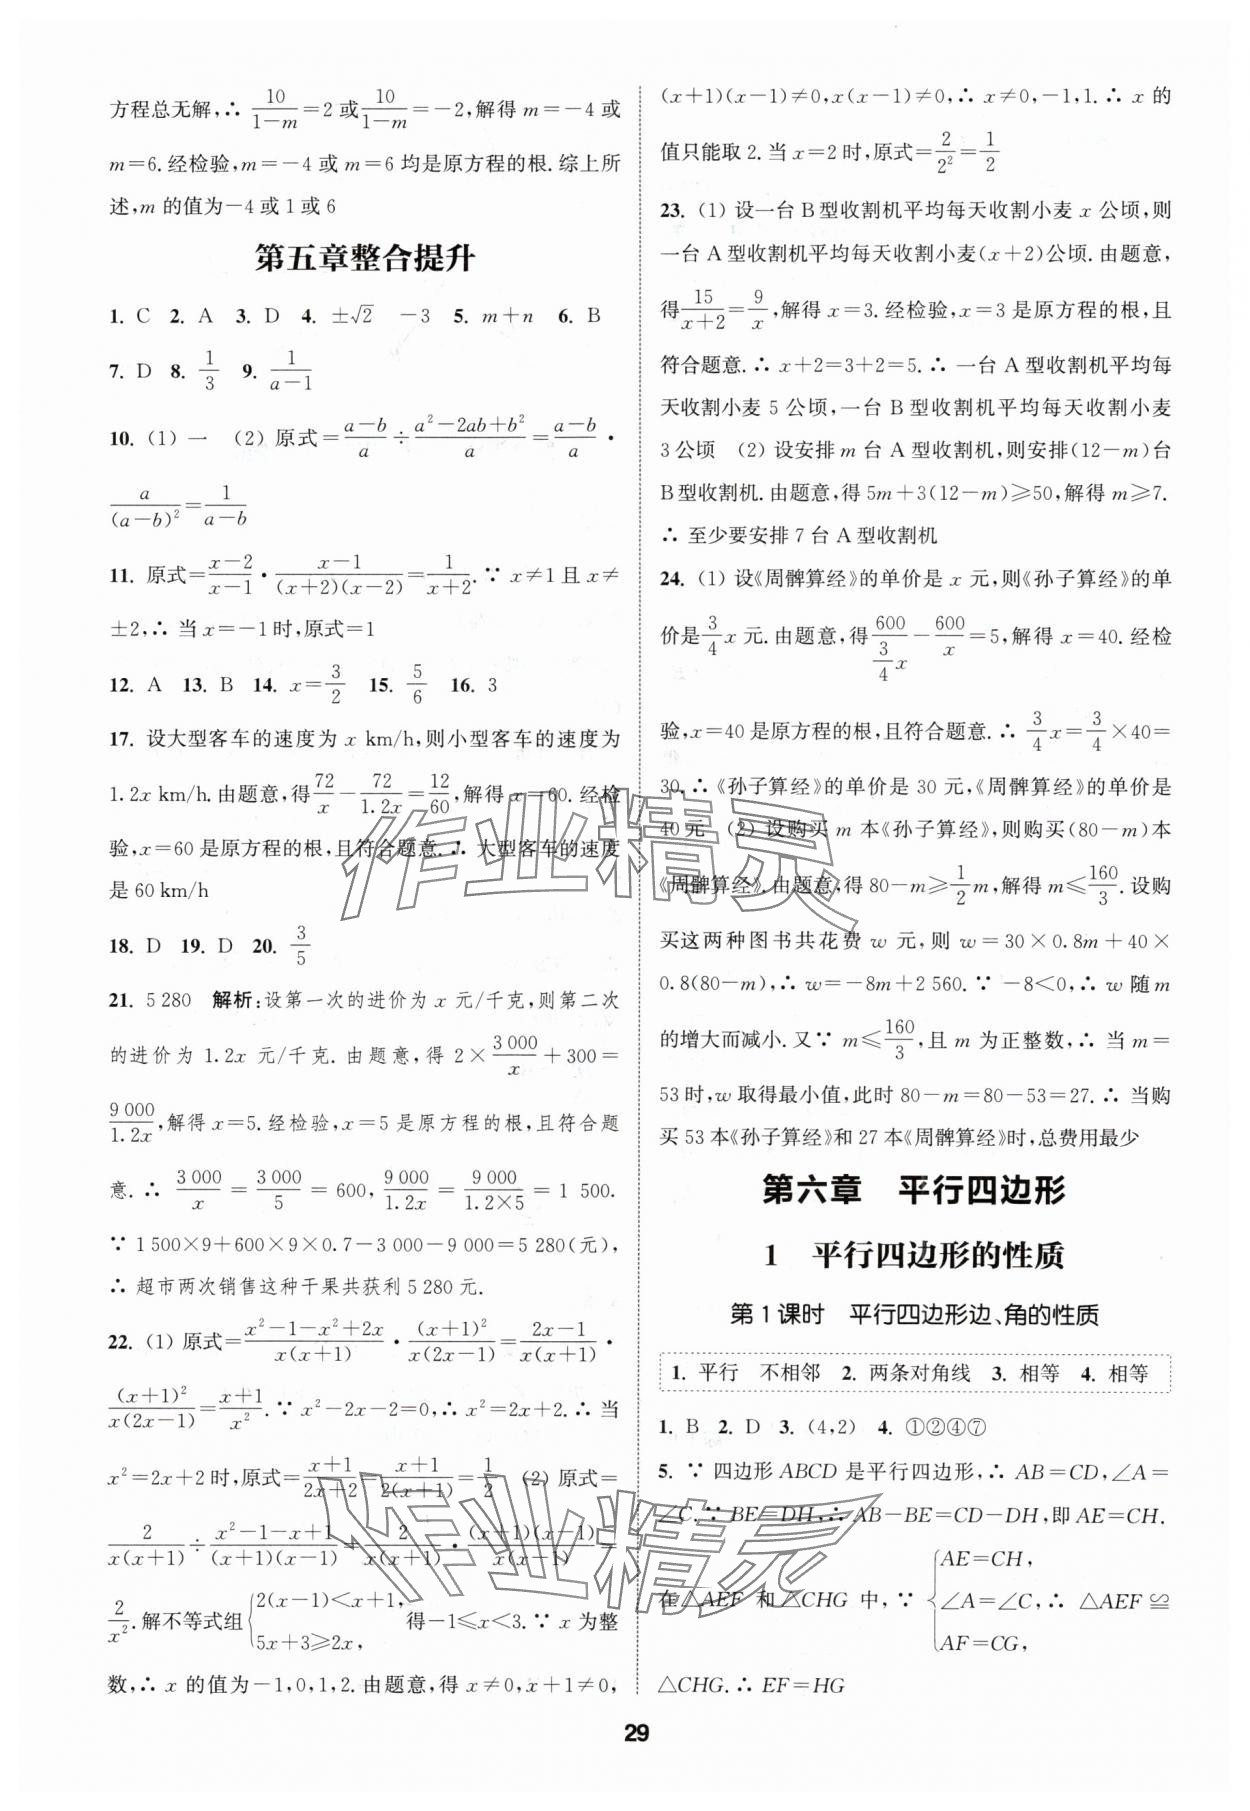 方程总无解,∴ 10/(1-m)=2 或 10/(1-m)=-2,解得 m=-4 或
m=6.经检验,m=-4 或 m=6 均是原方程的根.综上所
述,m 的值为-4 或 1 或 6
第五章整合提升
1. C 2. A 3. D 4. ±√2 -3 5. m+n 6. B
7. D 8. 1/3 9. 1/(a-1)
10. (1) 一 (2) 原式=(a-b)/a÷(a²-2ab+b²)/a=(a-b)/a·
a/(a-b)²=1/(a-b)
11. 原式=(x-2)/(x-1)·(x-1)/((x+2)(x-2))=1/(x+2).∵ x≠1 且 x≠
±2,∴ 当 x=-1 时,原式=1
12. A 13. B 14. x=3/2 15. 5/6 16. 3
17. 设大型客车的速度为 x km/h,则小型客车的速度为
1.2x km/h.由题意,得 72/x-72/1.2x=12/60,解得 x=60.经检
验,x=60 是原方程的根,且符合题意.∴ 大型客车的速度
是 60 km/h
18. D 19. D 20. 3/5
21. 5 280 解析:设第一次的进价为 x 元/千克,则第二次
的进价为 1.2x 元/千克.由题意,得 2×3 000/x+300=
9 000/1.2x,解得 x=5.经检验,x=5 是原方程的根,且符合题
意.∴ 3 000/x=3 000/5=600,9 000/1.2x=9 000/(1.2×5)=1 500.
∵ 1 500×9+600×9×0.7-3 000-9 000=5 280(元),
∴ 超市两次销售这种干果共获利 5 280 元.
22. (1) 原式=(x²-1-x²+2x)/(x(x+1))·(x+1)²/(x(2x-1))=(2x-1)/(x(x+1))·
(x+1)²/(x(2x-1))=(x+1)/x².∵ x²-2x-2=0,∴ x²=2x+2.∴ 当
x²=2x+2 时,原式=(x+1)/(2x+2)=(x+1)/(2(x+1))=1/2 (2) 原式=
2/(x(x+1))÷(x²-1-x+1)/((x+1)(x-1))=2/(x(x+1))·((x+1)(x-1))/(x(x-1))=
2/x².解不等式组{2(x-1)<x+1, 5x+3≥2x, 得-1≤x<3.∵ x 为整
数,∴ x 的值为-1,0,1,2.由题意,得 x≠0,x+1≠0,
(x+1)(x-1)≠0,x(x-1)≠0,∴ x≠0,-1,1.∴ x 的
值只能取 2.当 x=2 时,原式=2/2²=1/2
23. (1) 设一台 B 型收割机平均每天收割小麦 x 公顷,则
一台 A 型收割机平均每天收割小麦(x+2)公顷.由题意,
得 15/(x+2)=9/x,解得 x=3.经检验,x=3 是原方程的根,且
符合题意.∴ x+2=3+2=5.∴ 一台 A 型收割机平均每
天收割小麦 5 公顷,一台 B 型收割机平均每天收割小麦
3 公顷 (2) 设安排 m 台 A 型收割机,则安排(12-m)台
B 型收割机.由题意,得 5m+3(12-m)≥50,解得 m≥7.
∴ 至少要安排 7 台 A 型收割机
24. (1) 设《周髀算经》的单价是 x 元,则《孙子算经》的单
价是 3/4 x 元.由题意,得 600/(3/4 x)-600/x=5,解得 x=40.经检
验,x=40 是原方程的根,且符合题意.∴ 3/4 x=3/4×40=
30.∴ 《孙子算经》的单价是 30 元,《周髀算经》的单价是
40 元 (2) 设购买 m 本《孙子算经》,则购买(80-m)本
《周髀算经》.由题意,得 80-m≥1/2 m,解得 m≤160/3.设购
买这两种图书共花费 w 元,则 w=30×0.8m+40×
0.8(80-m),∴ w=-8m+2 560.∵ -8<0,∴ w 随 m
的增大而减小.又∵ m≤160/3,且 m 为正整数,∴ 当 m=
53 时,w 取得最小值,此时 80-m=80-53=27.∴ 当购
买 53 本《孙子算经》和 27 本《周髀算经》时,总费用最少
第六章 平行四边形
1 平行四边形的性质
第 1 课时 平行四边形边、角的性质
1. 平行 不相邻 2. 两条对角线 3. 相等 4. 相等
1. B 2. D 3. (4,2) 4. ①②④⑦
5. ∵ 四边形 ABCD 是平行四边形,∴ AB=CD,∠A=
∠C.∵ BE=DH,∴ AB-BE=CD-DH,即 AE=CH.
在△AEF 和△CHG 中,∵ {AE=CH, ∠A=∠C, AF=CG, ∴ △AEF≌
△CHG.∴ EF=HG
29
作业精灵
作业精灵